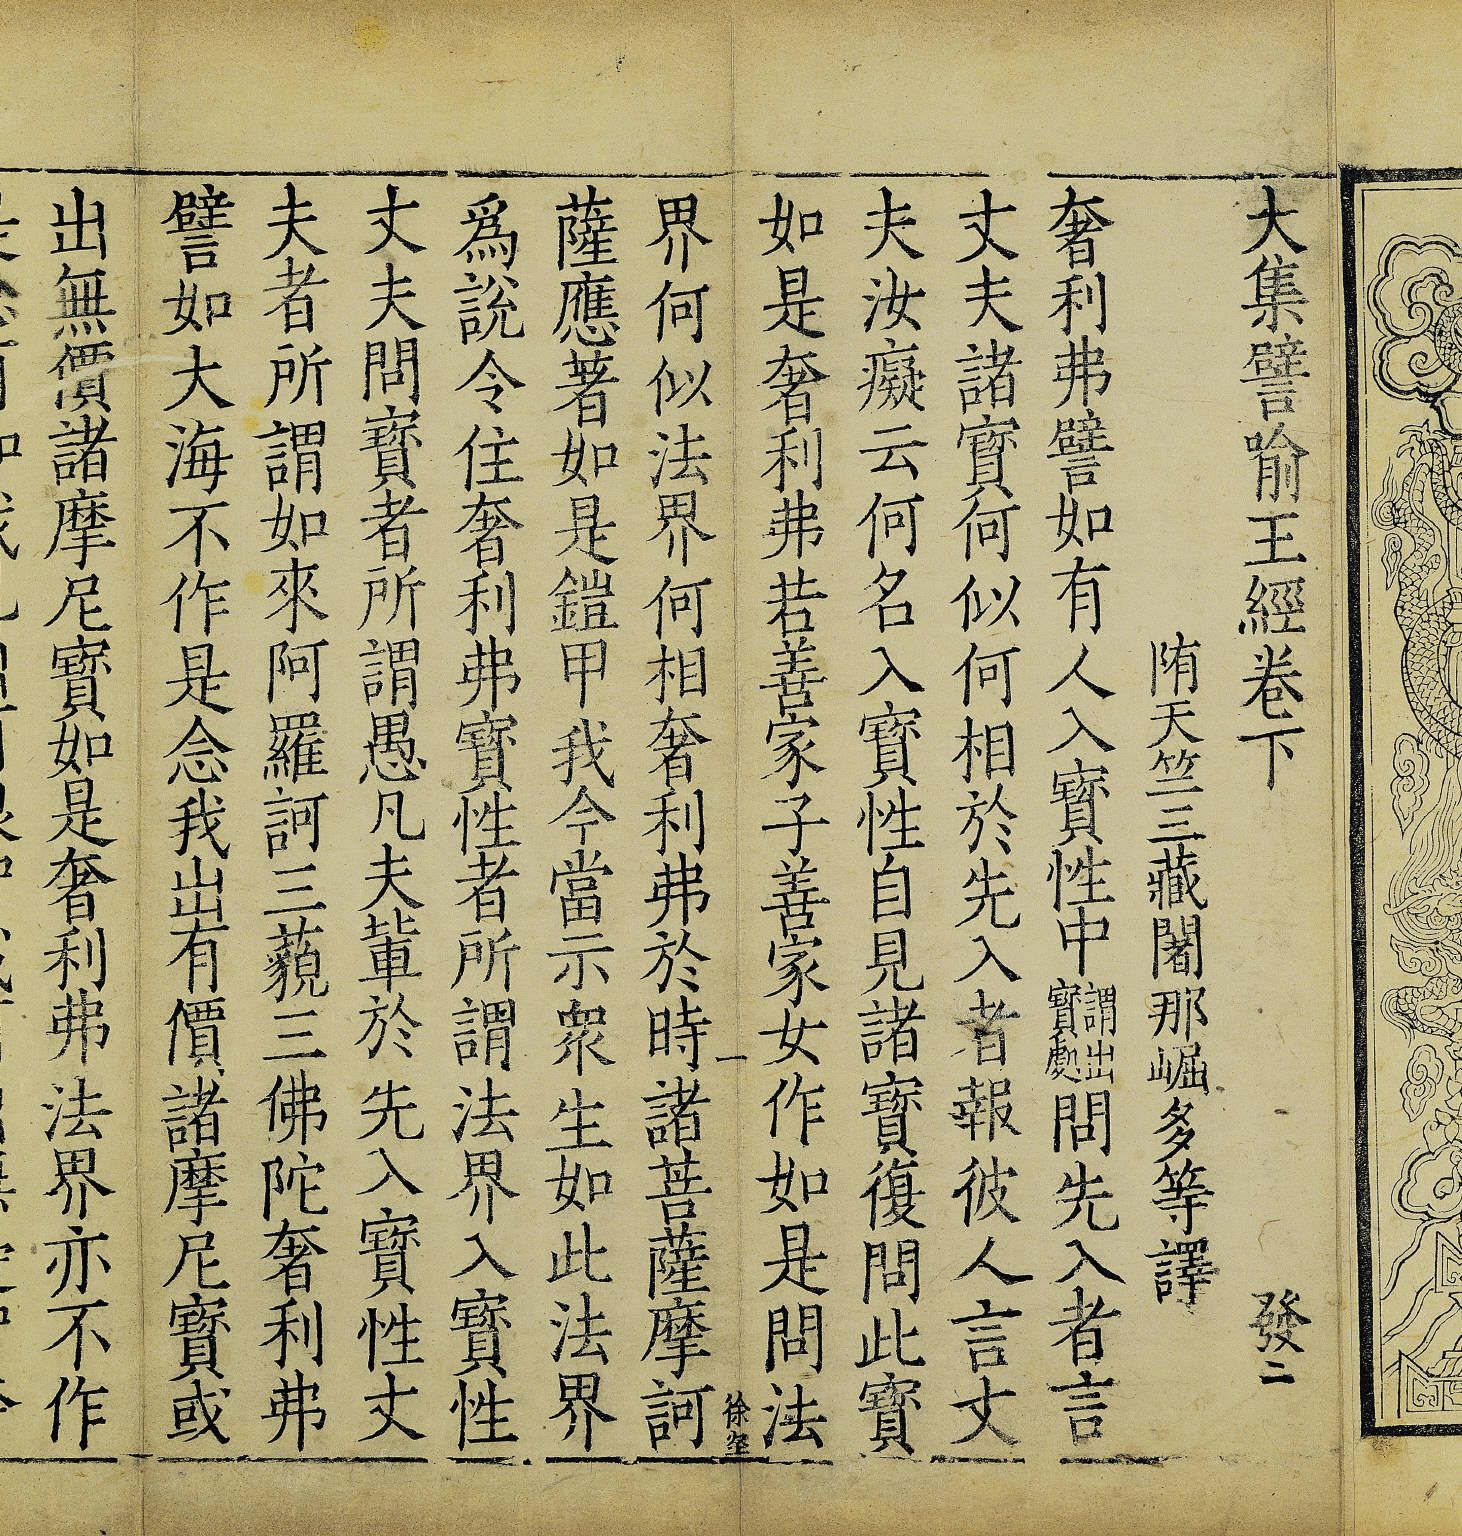 大集譬喻王經卷下　發二
隋天竺三藏闍那崛多等譯
奢利弗譬如有人入寶性中謂出寶處問先入者言
丈夫諸寶何似何相於先入者報彼人言丈
夫汝癡云何名入寶性自見諸寶復問此寶
如是奢利弗若善家子善家女作如是問法
一
徐堅
界何似法界何相奢利弗於時諸菩薩摩訶
薩應著如是鎧甲我今當示眾生如此法界
爲說令住奢利弗寶性者所謂法界入寶性
丈夫問寶者所謂愚凡夫輩於先入寶性丈
夫者所謂如來阿羅訶三藐三佛陀奢利弗
譬如大海不作是念我出有價諸摩尼寶或
出無價諸摩尼寶如是奢利弗法界亦不作